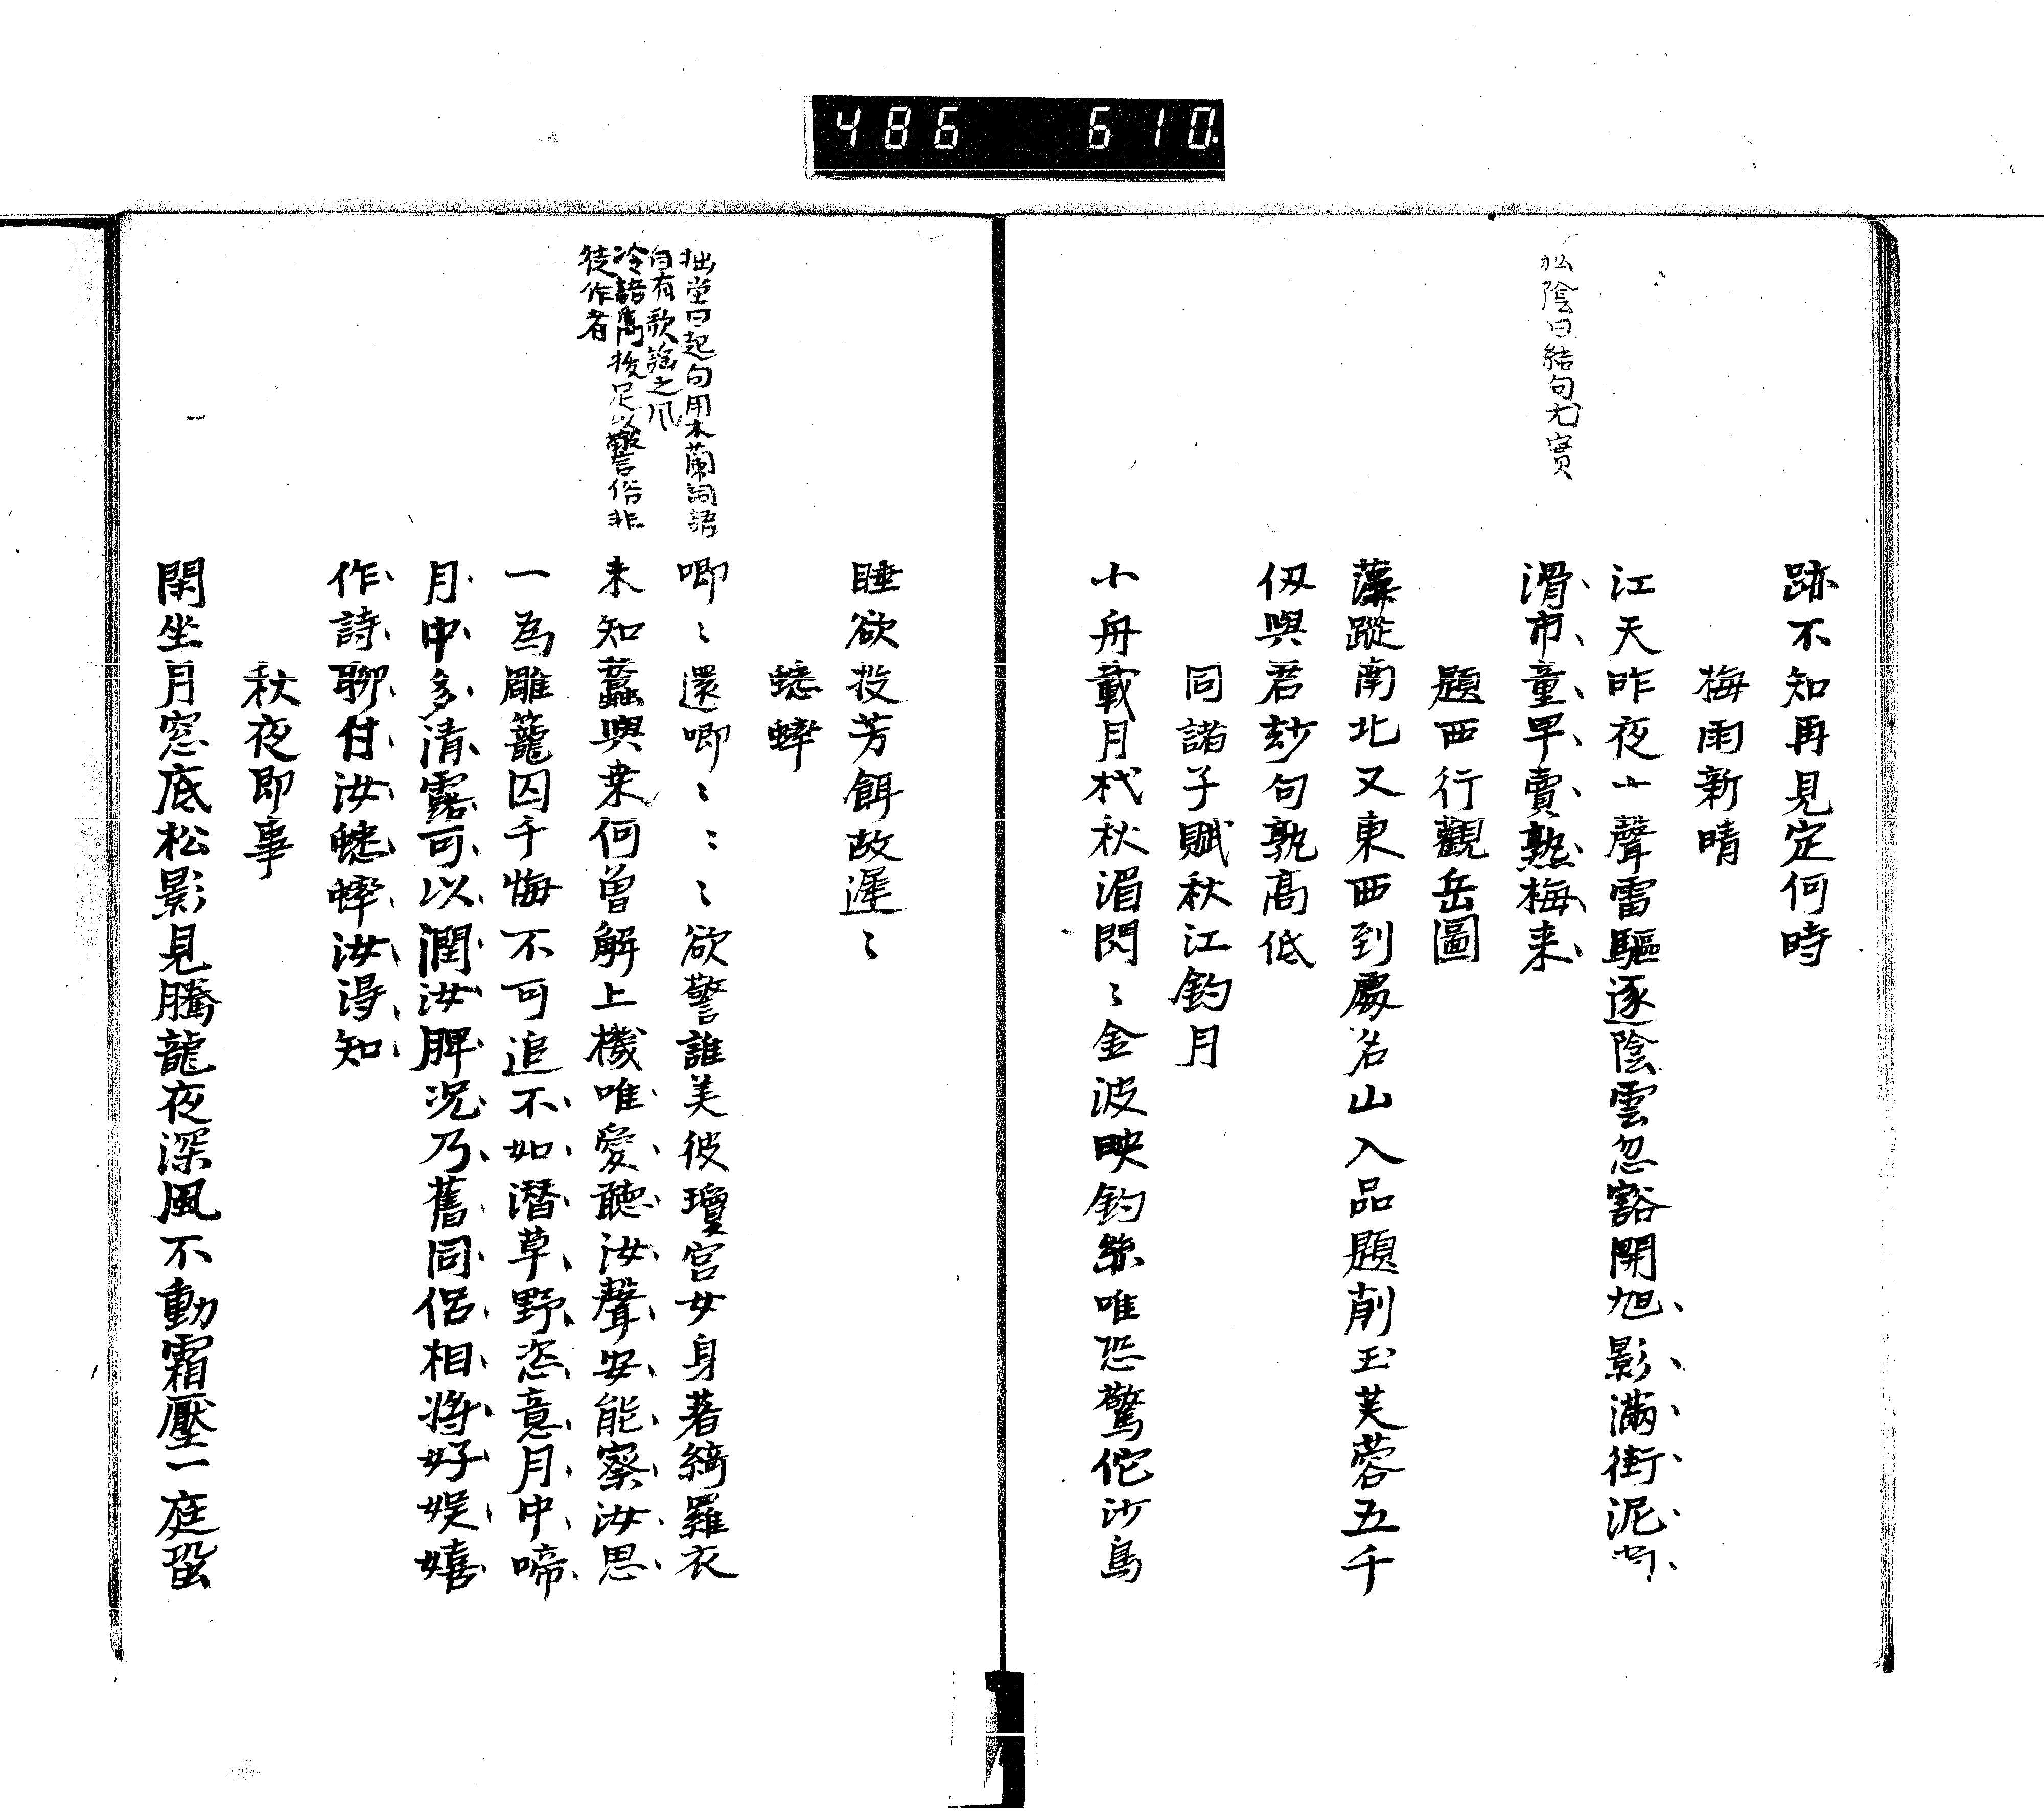 486 610
松陰曰結句尤實
跡不知再見定何時
梅雨新晴
江天昨夜一聲雷驅逐陰雲忽豁開旭影滿街泥
滑市童早賣熟梅来
題西行觀岳圖
蹤南北又東西到處名山入品題削玉芙蓉五千
仭與君玅句孰高低
同諸子賦秋江釣月
小舟載月秋湄閃〻金波映釣絲唯恐驚佗沙鳥
拙堂曰起句用木蘭詞語
自有歌謡之風
冷語雋拔足以警俗非
徒作者
睡欲投芳餌故遲〻
蟋蟀
唧〻還唧〻〻〻欲警誰美彼瓊宮女身著綺羅衣
未知蠶與桒何曽解上機唯愛聽汝聲安能察汝思
一為雕籠囚千悔不可追不如潜草野恣意月中啼
月中多清露可以潤汝脾况乃舊同侶相将好娱嬉
作詩聊付汝蟋蟀汝得知
秋夜即事
閑坐月窓底松影見騰龍夜深風不動霜壓一庭蛩